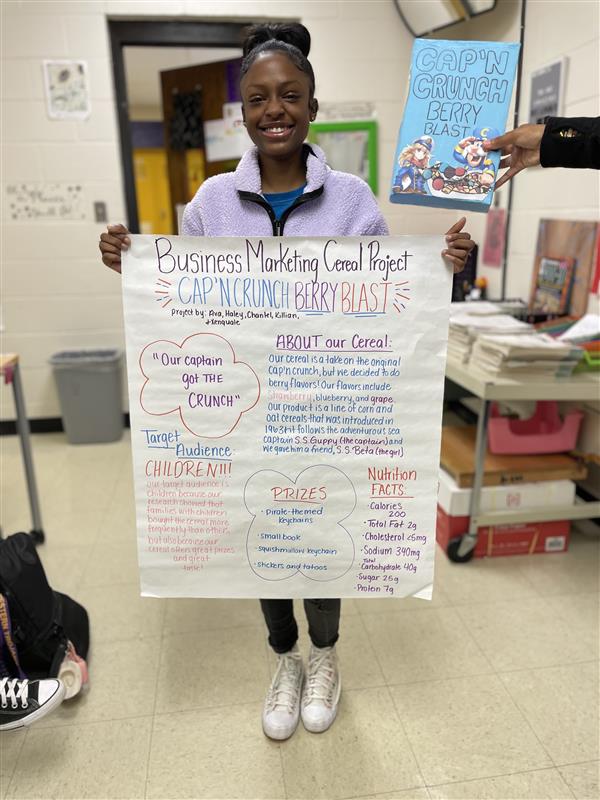 CAP'N
CRUNCH
BERRY
BLAST
Business Marketing Cereal Project
CAP'N CRUNCH BERRY BLAST
project by: Ava, Haley, Chantel, Killian,
+ Kenquale
"Our captain
got THE
CRUNCH"
ABOUT our Cereal:
Our cereal is a take on the original
cap'n crunch, but we decided to do
berry flavors! Our flavors include
strawberry, blueberry, and grape.
Our product is a line of corn and
oat cereals that was introduced in
1963! It follows the adventurous sea
captain S.S. Guppy (the captain) and
we gave him a friend, S.S. Beta (the girl)
Target
Audience:
CHILDREN!!!
our target audience is
children because our
research showed that
families with children
bought the cereal more
frequently than without,
but also because our
cereal offers great prizes
and great
taste!
PRIZES
• Pirate-themed
keychains
• Small book
• squishmallow keychain
• stickers and tatoos
Nutrition
FACTS:
• Calories
200
• Total Fat 2g
• Cholesterol <5mg
• Sodium 340mg
• Total Carbohydrate 40g
• Sugar 25g
• Protein 7g